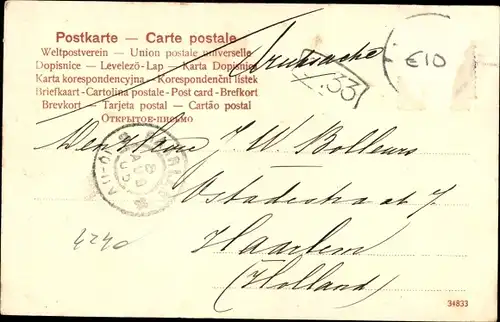 Postkarte — Carte postale
Weltpostverein — Union postale universelle
Dopisnice — Levelező-Lap — Karta Dopisnice
Karta korespondencyjna — Korespondenční lístek
Briefkaart - Cartolina postale - Post card - Brefkort
Brevkort — Tarjeta postal — Cartão postal
ОТКРЫТОЕ-ПИСЬМО
Drucksache
33
€10
8
AUG
Den Heere J. W. Bolleurs
Ostadestraat 7
Haarlem
(Holland)
4240
34833